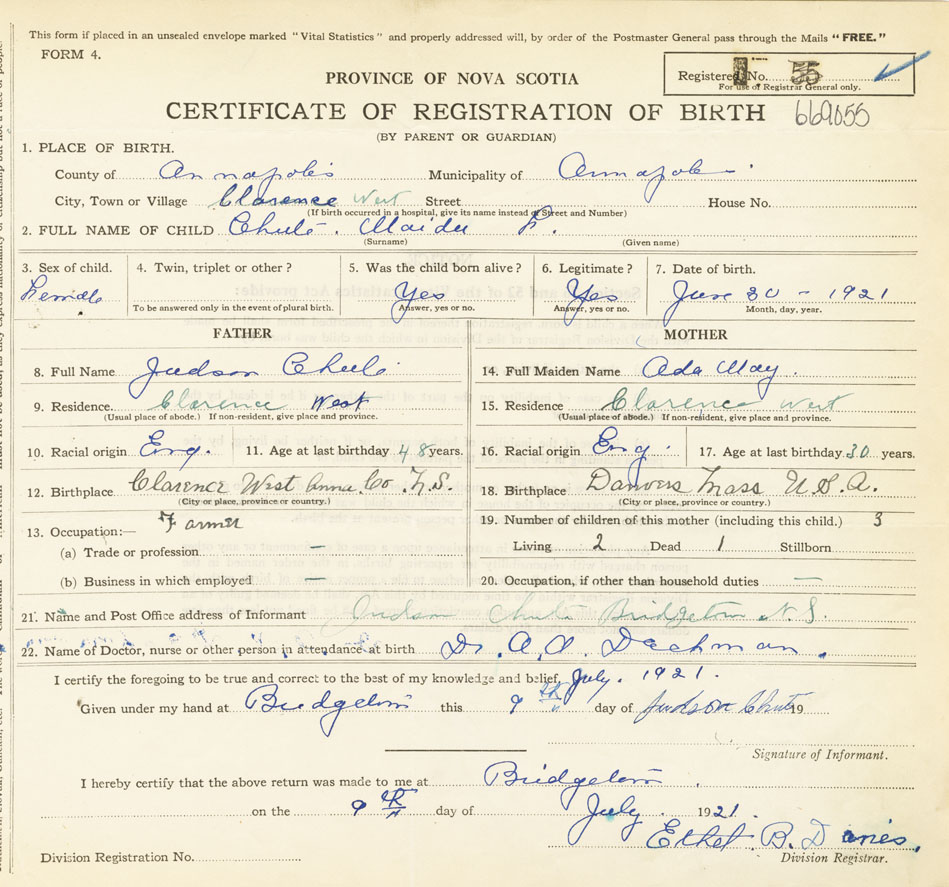 This form if placed in an unsealed envelope marked "Vital Statistics" and properly addressed will, by order of the Postmaster General pass through the Mails "FREE."
FORM 4.
Registered No. 55
For use of Registrar General only.
PROVINCE OF NOVA SCOTIA
CERTIFICATE OF REGISTRATION OF BIRTH 669055
(BY PARENT OR GUARDIAN)
1. PLACE OF BIRTH.
County of Annapolis Municipality of Annapolis
City, Town or Village Clarence West Street House No.
(If birth occurred in a hospital, give its name instead of Street and Number)
2. FULL NAME OF CHILD Chute. F.
(Surname) (Given name)
3. Sex of child. 4. Twin, triplet or other? 5. Was the child born alive? 6. Legitimate? 7. Date of birth.
Female Yes Yes June 30 - 1921
To be answered only in the event of plural birth. Answer, yes or no. Answer, yes or no. Month, day, year.
FATHER MOTHER
8. Full Name Judson Chute 14. Full Maiden Name Ada May.
9. Residence. Clarence West 15. Residence Clarence West
(Usual place of abode.) If non-resident, give place and province. (Usual place of abode.) If non-resident, give place and province.
10. Racial origin Eng. 11. Age at last birthday 48 years. 16. Racial origin Eng. 17. Age at last birthday 30 years.
12. Birthplace Clarence West Anna. Co. N.S. 18. Birthplace Danvers Mass U.S.A.
(City or place, province or country.) (City or place, province or country.)
13. Occupation:— Farmer 19. Number of children of this mother (including this child.) 3
(a) Trade or profession — Living 2 Dead 1 Stillborn
(b) Business in which employed — 20. Occupation, if other than household duties —
21. Name and Post Office address of Informant Judson Chute Bridgetown N.S.
22. Name of Doctor, nurse or other person in attendance at birth Dr. A.A. Dechman.
I certify the foregoing to be true and correct to the best of my knowledge and belief, July. 1921.
Given under my hand at Bridgetown this 9th day of Judson Chute 19
Signature of Informant.
I hereby certify that the above return was made to me at Bridgetown
on the 9th day of July 1921.
Ethel B. Davies.
Division Registration No. Division Registrar.